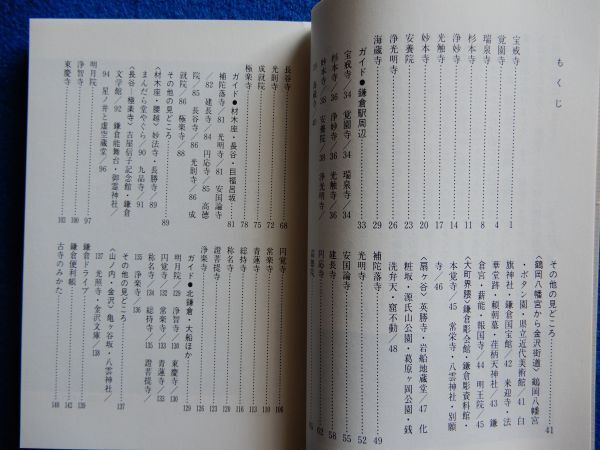 もくじ
宝戒寺 1
覚園寺 4
瑞泉寺 8
杉本寺 11
浄妙寺 14
光触寺 17
妙本寺 20
安養院 23
浄光明寺 25
海蔵寺 29
ガイド●鎌倉駅周辺 33
宝戒寺/34 覚園寺/34 瑞泉寺/34
杉本寺/36 浄妙寺/36 光触寺/36
妙本寺/38 安養院/38 浄光明寺/
海蔵寺/40
その他の見どころ 41
〈鶴岡八幡宮から金沢街道〉鶴岡八幡宮
・ボタン園・県立近代美術館/41 白
旗神社・鎌倉国宝館/42 来迎寺・法
華堂跡・頼朝墓・荏柄天神社/43 鎌
倉宮・薪能・報国寺/44 明王院/45
〈大町界隈〉鎌倉彫会館・鎌倉彫資料館・
本覚寺/45 常栄寺・八雲神社・別願
寺/46
〈扇ヶ谷〉英勝寺・岩船地蔵堂/47 化
粧坂・源氏山公園・葛原ヶ岡公園・銭
洗弁天・窟不動/48
補陀落寺 49
光明寺 52
安国論寺 55
建長寺 58
円応寺 62
高徳院 65
長谷寺 68
光則寺 72
成就院 75
極楽寺 78
ガイド●材木座・長谷・巨福呂坂 81
補陀落寺/81 光明寺/81 安国論寺
/82 建長寺/84 円応寺/85 高徳
院/85 長谷寺/86 光則寺/86 成
就院/86 極楽寺/88
その他の見どころ 89
〈材木座・腰越〉妙法寺・長勝寺/89
まんだら堂やぐら/90 九品寺/91
〈長谷・極楽寺〉吉屋信子記念館・鎌倉
文学館/92 鎌倉能舞台・御霊神社/
94 星ノ井と虚空蔵堂/96
明月院 97
浄智寺 102
東慶寺
円覚寺 106
常楽寺 110
青蓮寺 113
総持寺 116
称名寺
証菩提寺
浄楽寺 126
ガイド●北鎌倉・大船ほか 129
明月院/129 浄智寺/130 東慶寺/
円覚寺/132 常楽寺/133 青蓮寺/
称名寺/134 総持寺/135 證菩提寺/
135 浄楽寺/136
その他の見どころ 137
〈山ノ内・金沢〉亀ヶ谷坂・八雲神社/
137 光照寺・金沢文庫/138
鎌倉ドライブ 139
鎌倉便利帳 142
古寺のみかた 148